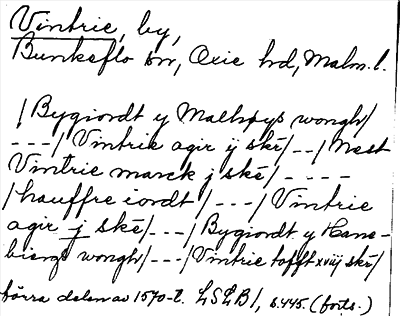 Vintrie, by,
Bunkeflo sn, Oxie hd, Malm. l.
/ Bygiordt y Malthpys wongh /
---/ Vintrie agir ij ské /--/ Nest
Vintrie marck j ské / ----
/ hauffre iordt / ---/ Vintrie
agir j ské /---/ Bygiordt y Hans-
biergs wongh /---/ Vintrie tofft xviij ské /
förra delen av 1570-t. LSLB 1, s. 445. (forts.)